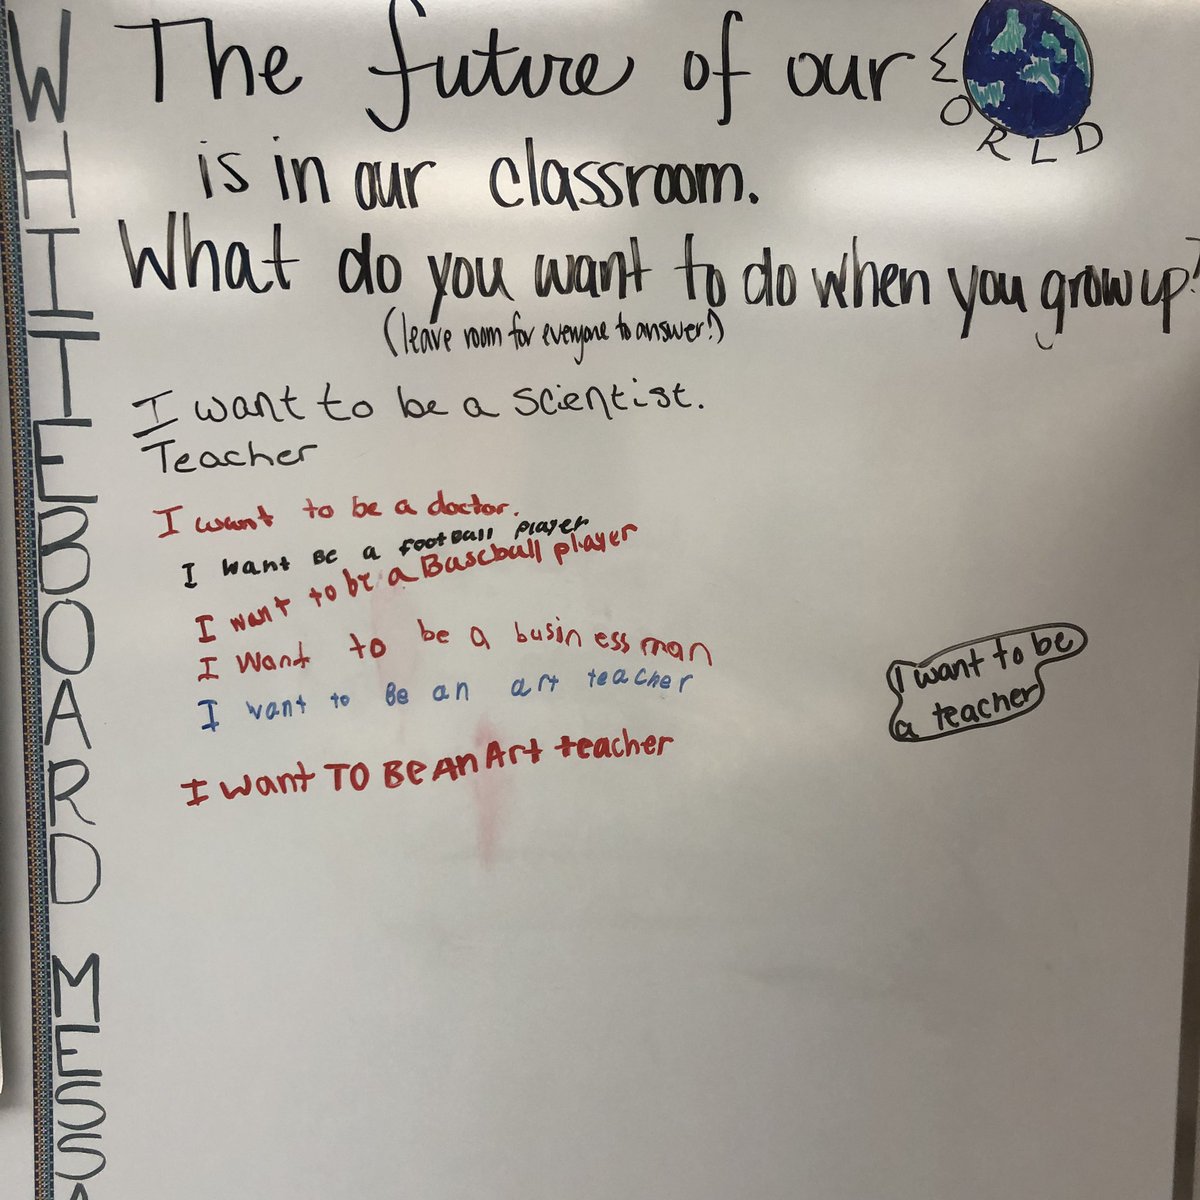 WHITEBOARD MESSA
The future of our WORLD
is in our classroom.
What do you want to do when you grow up?
(leave room for everyone to answer!)
I want to be a scientist.
Teacher
I want to be a doctor.
I want Be a football player
I want to be a Baseball player
I want to be a business man
I want to Be an art teacher
I want to be
a teacher
I want TO Be An Art teacher